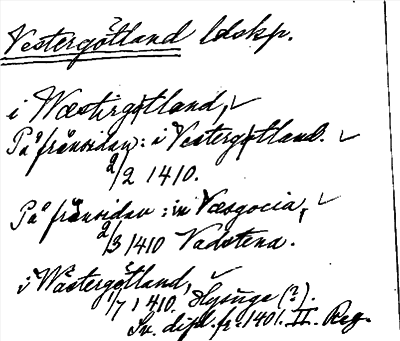 Vestergötland ldskp.
i Wæstirgøtland,
På frånsidan: i Vestergøtland.
2/2 1410.
På frånsidan: in Væsgocia,
2/3 1410 Vadstena.
i Wåstergötland,
1/7 1410. (?).
Sv. dipl. fr. 1401. II. Reg.